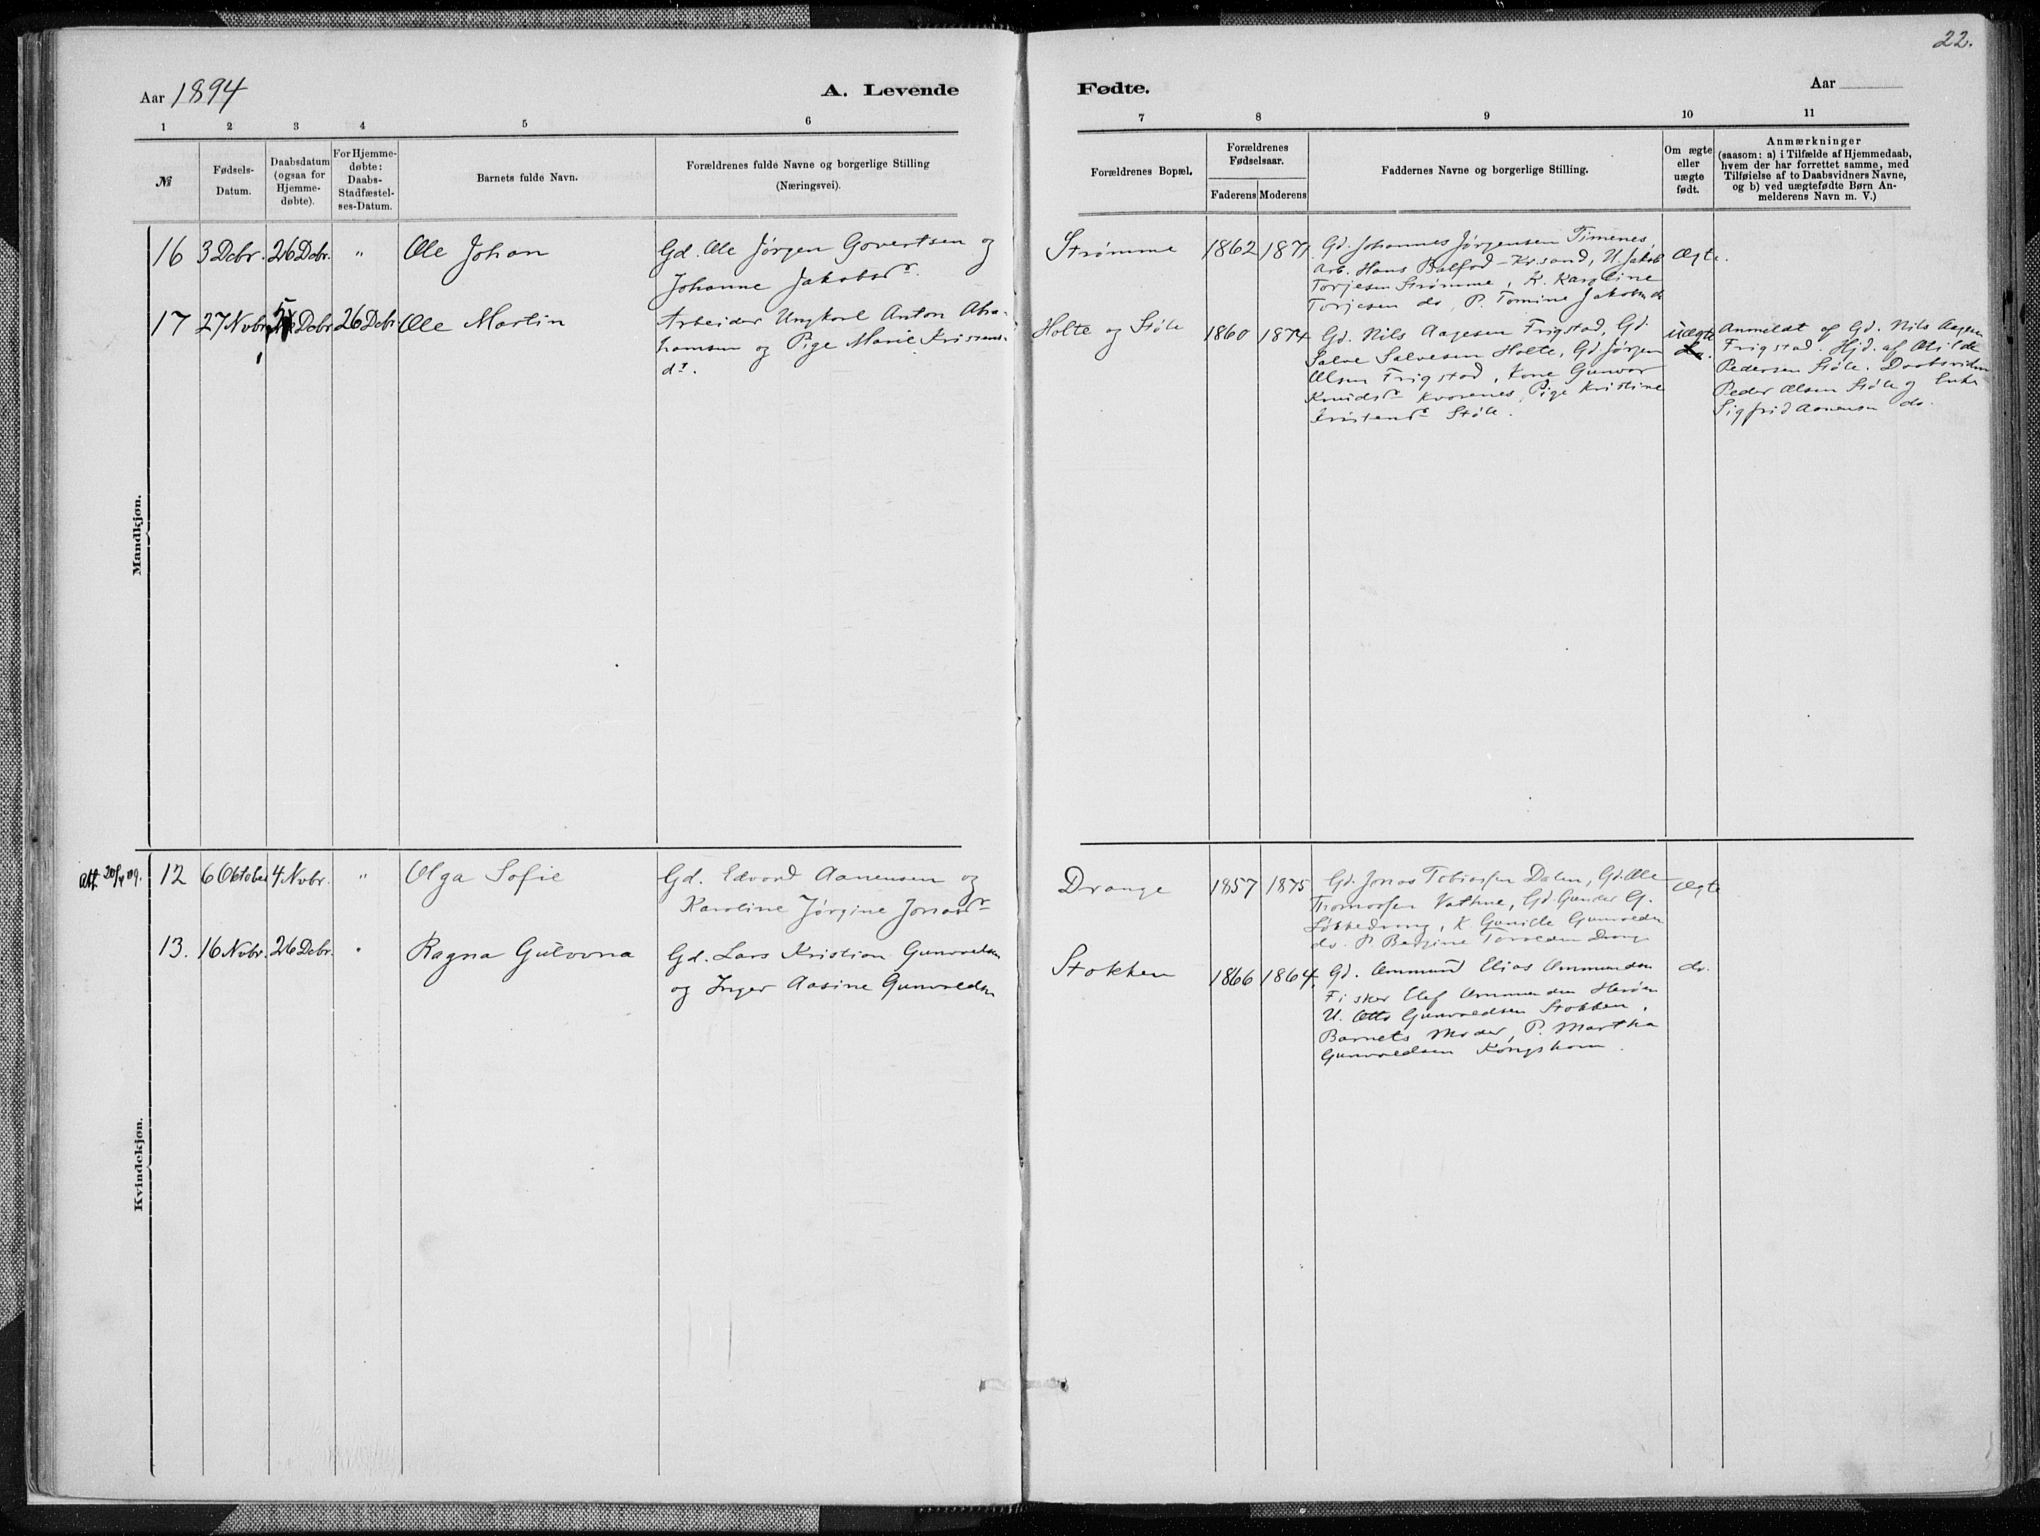 22.
Aar 1894 A. Levende Fødte. Aar
1 2 3 4 5 6 7 8 9 10 11
№
Fødsels-
Datum.
Daabsdatum
(ogsaa for
Hjemme-
døbte).
For Hjemme-
døbte:
Daabs-
Stadfæstel-
ses-Datum.
Barnets fulde Navn.
Forældrenes fulde Navne og borgerlige Stilling
(Næringsvei).
Forældrenes Bopæl.
Forældrenes
Fødselsaar.
Faderens Moderens
Faddernes Navne og borgerlige Stilling.
Om ægte
eller
uægte
født.
Anmærkninger
(saasom: a) i Tilfælde af Hjemmedaab,
hvem der har forrettet samme, med
Tilføielse af to Daabsvidners Navne,
og b) ved uægtefødte Børn An-
melderens Navn m. V.)
Mandkjøn.
16 3 Dcbr. 26 Dcbr. " Ole Johan
Gd. Ole Jørgen Govertsen og
Johanne Jakobsdr.
Strømme 1862 1871
Gd. Johannes Jørgensen Timenes,
Arb. Hans Balfod - Kr.sand, U. Jakob
Torjesen Strømme, K. Karoline
Torjesen do, P. Tomine Jakobsdr.
Ægte.
17 27 Nvbr. Dcbr. 26 Dcbr. Ole Martin
Arbeider Ungkarl Anton Abra-
hamsen og Pige Marie Kristens-
dr.
Holte og Støle 1860 1874
Gd. Nils Aagesen Frigstad, Gd.
Salve Salvesen Holte, Gd Jørgen
Olsen Frigstad, Kone Gunvor
Knudsdr. Kvarenes, Pige Kristine
Kristensdr. Støle.
uægte
do.
Anmeldt af Gd. Nils Aagesen
Frigstad. Hjd. af Olilde
Pedersen Støle. Daabsvidner
Peder Olsen Støle og Enke
Sigfrid Aanensen do.
Kvindekjøn.
Att. 20/4 09. 12 6 Oktober 4 Nvbr. " Olga Sofie
Gd. Edvard Aanensen og
Karoline Jørgine Jonasdr.
Drange 1857 1875
Gd. Jonas Tobiassen Dalen, Gd. Ole
Thomassen Vatne, Gd. Gunder G.
K. Gunille Gunvaldsen
do. P. Bergine Torvaldsen Drange
Ægte
13. 16 Nvbr. 26 Dcbr. " Ragna Gulovna
Gd. Lars Kristian Gunvaldsen
og Inger Aasine Gunvaldsen
Stokken 1866 1864.
Gd. Ammund Elias Ammundsen
Fisker Olef Ammundsen Herøen
U. Otto Gunvaldsen Stokken,
Barnets Moder, P. Martha
Gunvaldsen Kongshavn.
do.